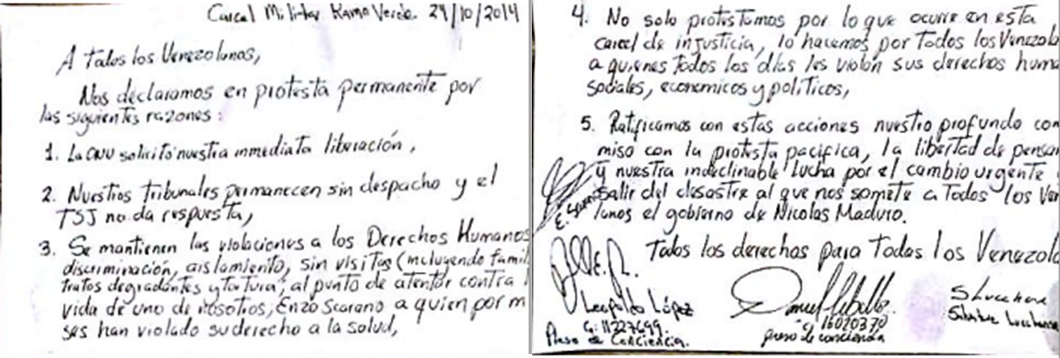 Carcel Militar Ramo Verde. 29/10/2014
A Todos los Venezolanos,
Nos declaramos en protesta permanente por
las siguientes razones:
1. La ONU solicitó nuestra inmediata liberación,
2. Nuestros Tribunales permanecen sin despacho y el
TSJ no da respuesta,
3. Se mantienen las violaciones a los Derechos Humanos
discriminación, aislamiento, sin visitas (incluyendo famil
tratos degradantes y tortura; al punto de atentar contra
vida de uno de nosotros, Enzo Scarano a quien por m
ses han violado su derecho a la salud,
4. No solo protestamos por lo que ocurre en esta
carcel de injusticia, lo hacemos por Todos los Venezol
a quienes todos los días les violan sus derechos huma
sociales, economicos y politicos,
5. Ratificamos con estas acciones nuestro profundo com
miso con la protesta pacifica, la libertad de pensar
y nuestra indeclinable lucha por el cambio urgente
salir del desastre al que nos somete a Todos los Ven
lanos el gobierno de Nicolas Maduro.
Todos los derechos para Todos los Venezol
E. Scarano
Leopoldo López
C.I: 11227699.
Preso de Conciencia.
Daniel Ceballos
C.I 16020370
preso de conciencia
S Lucchese
Salvatore Lucchese